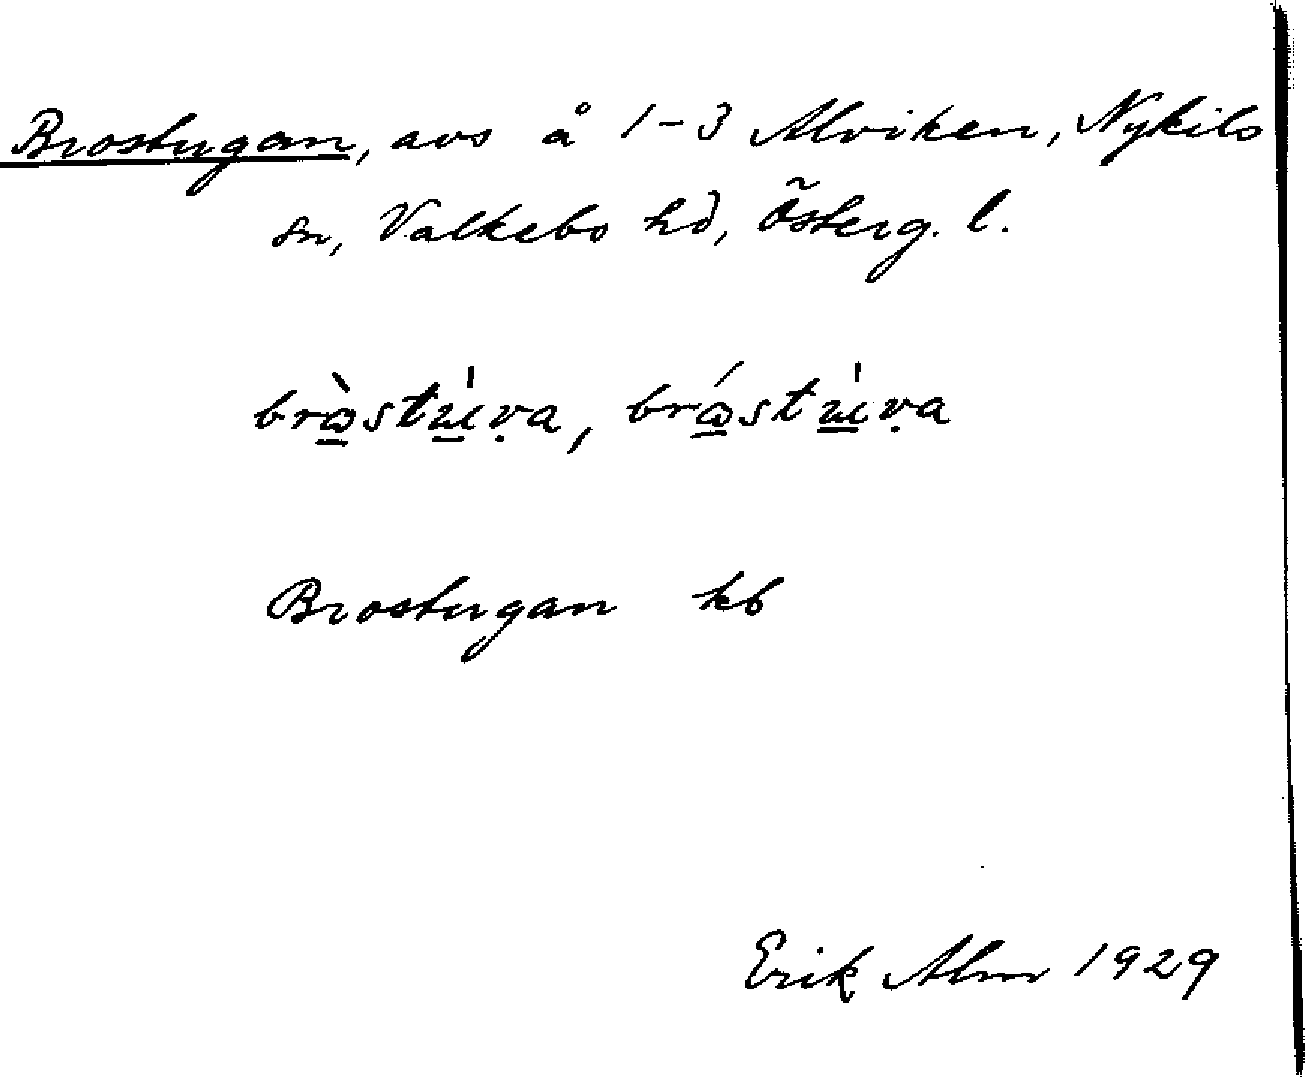 Brostugan, avs å 1-3 Alviken, Nykils
sn, Valkebo hd, Österg. l.
bròstúṿa, bróstúṿa
Brostugan kb
Erik Alm 1929